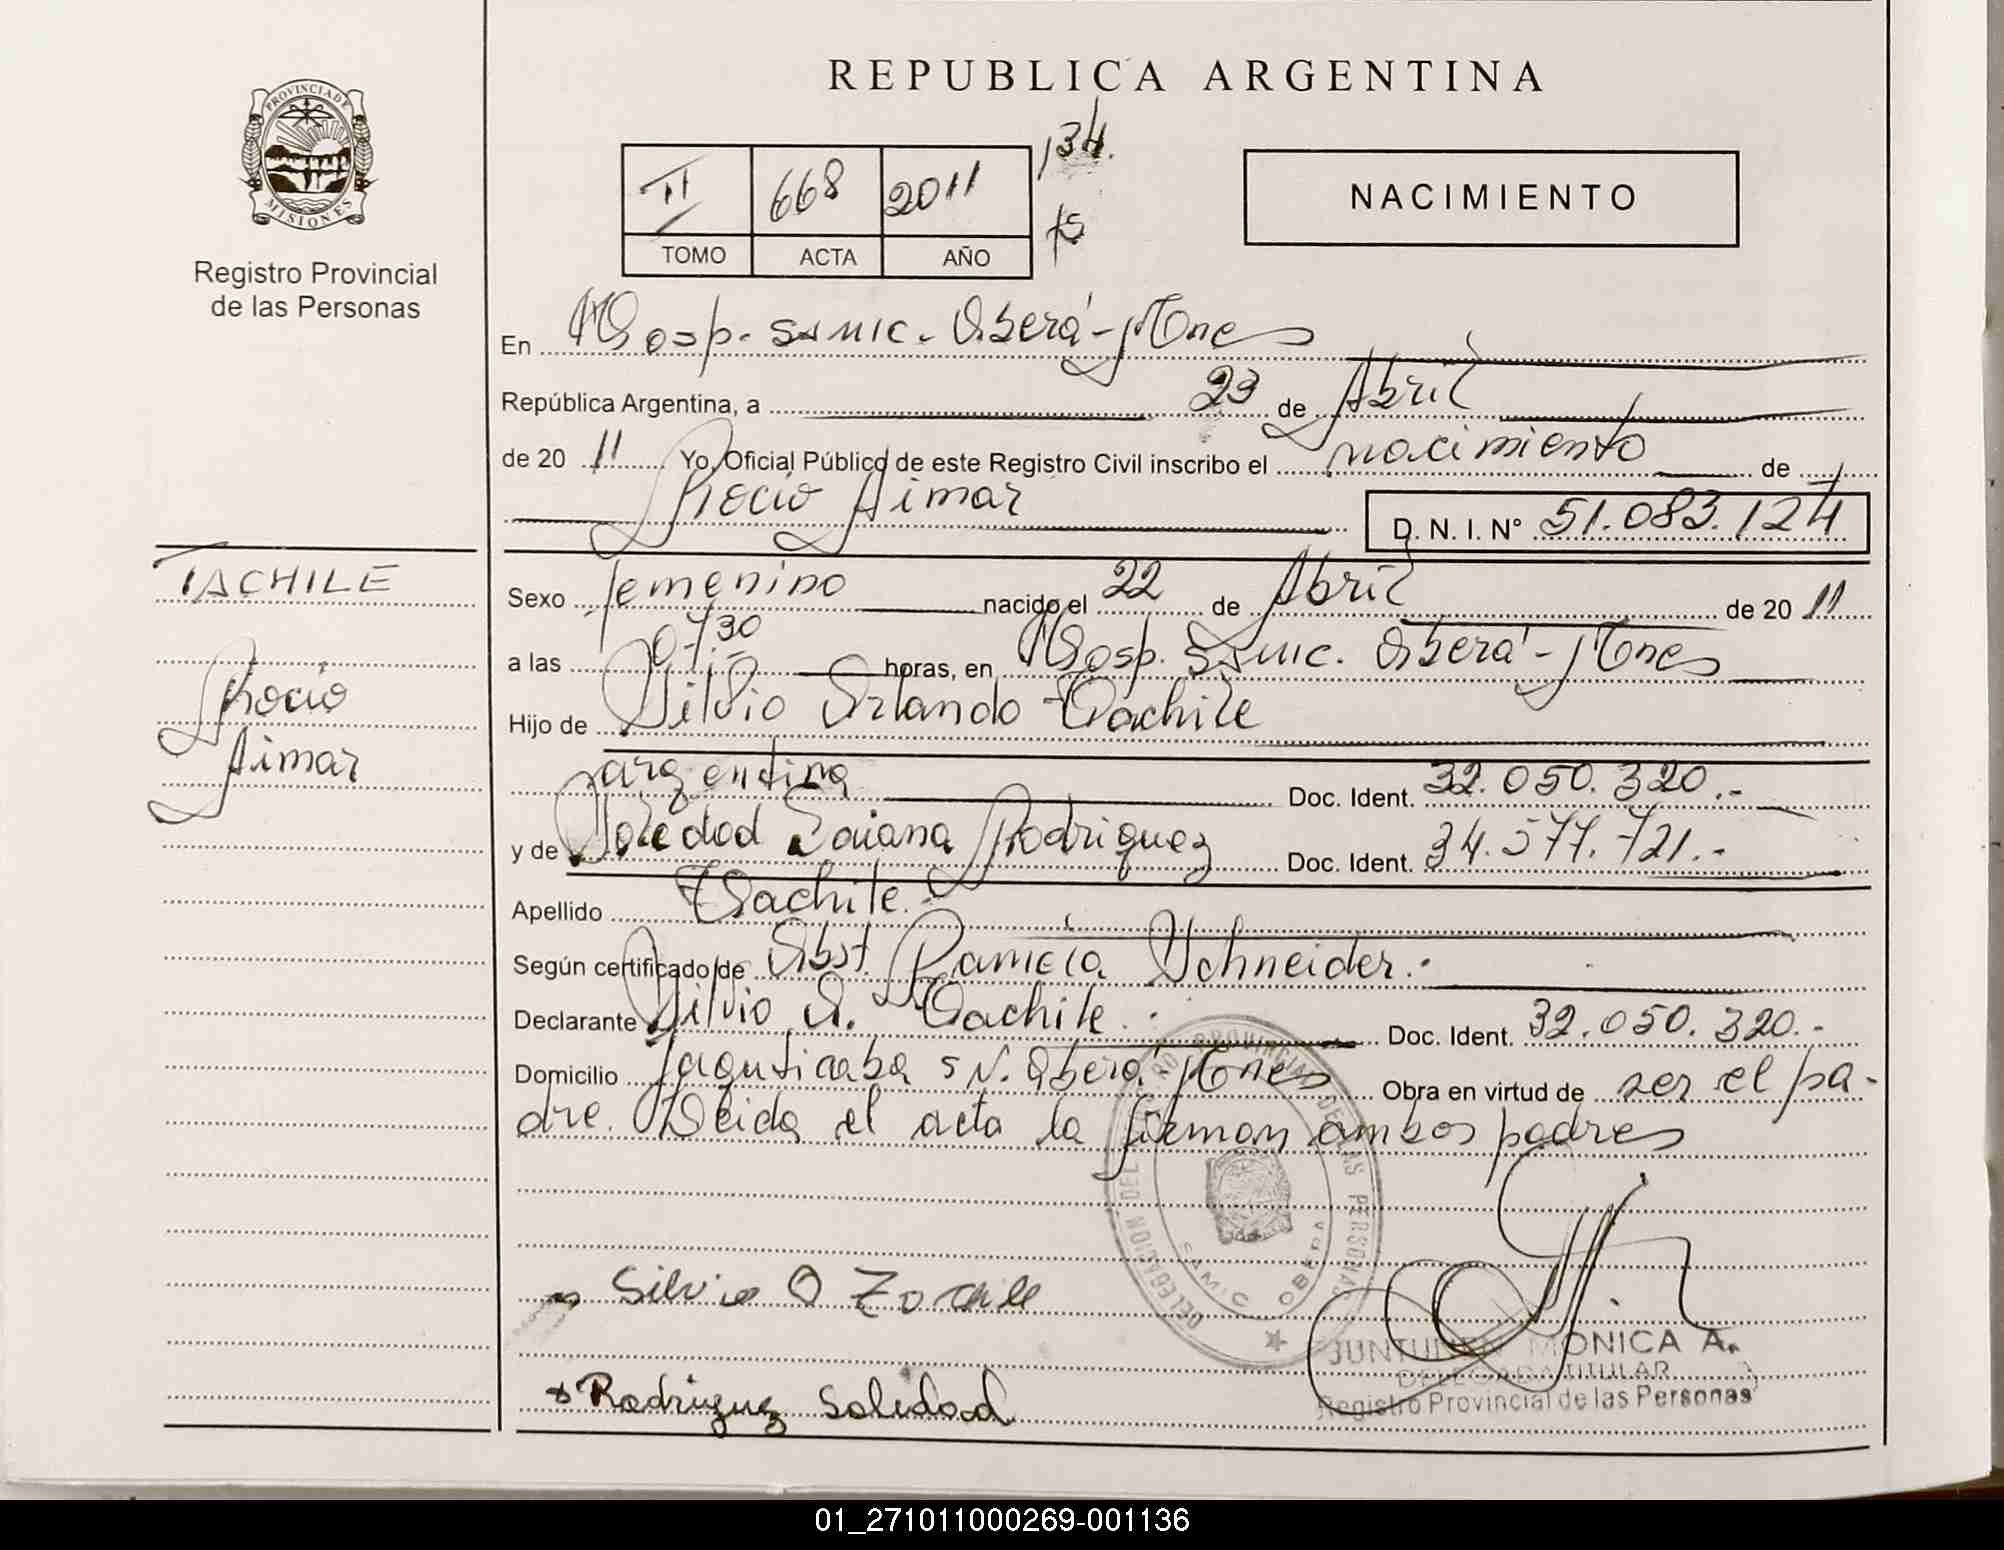 REPUBLICA ARGENTINA
PROVINCIA DE MISIONES
Registro Provincial
de las Personas
II 668 2011 134.
TOMO ACTA AÑO
NACIMIENTO
En Hosp. SAMIC. Oberá-Mnes
República Argentina, a 23 de Abril
de 2011 Yo, Oficial Público de este Registro Civil inscribo el nacimiento de
Rocio Aimar D. N. I. N° 51.083.124
TACHILE
Rocio
Aimar
Sexo femenino nacido el 22 de Abril de 2011
a las 07.30 horas, en Hosp. SAMIC. Oberá-Mnes
Hijo de Silvio Orlando Tachile
argentina Doc. Ident. 32.050.320.-
y de Soledad Daiana Rodriguez Doc. Ident. 34.577.721.-
Apellido Tachile.-
Según certificado de Obst. Pamela Schneider.-
Declarante Silvio O. Tachile.- Doc. Ident. 32.050.320.-
Domicilio Jaguticaba SN. Oberá-Mnes Obra en virtud de ser el pa-
dre. Leida el acta la firman ambos padres
DELEGACION DEL REGISTRO PROVINCIAL DE LAS PERSONAS
SAMIC OBERA
Silvio O
Rodriguez Soledad
MONICA A.
DELEGADA TITULAR
Registro Provincial de las Personas
01_271011000269-001136